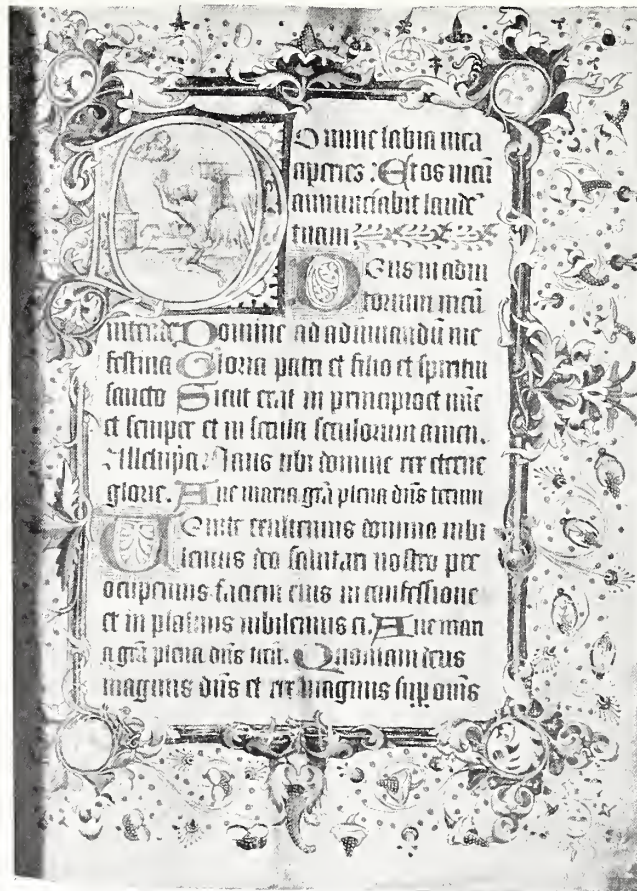 Omine labia mea
aperies: Et os meū
annunciabit laudē
tuam.
Deus in adiu
torium meū
intende Domine ad adiuuandū me
festina Gloria patri et filio et spiritui
sancto Sicut erat in principio et nūc
et semper et in secula seculorum amen.
Alleluya. Laus tibi domine rex eterne
glorie. Aue maria grā plena dn̄s tecum
Uenite exultemus domino iubi
lemus deo salutari nostro pre
ocupemus faciem eius in confessione
et in psalmis iubilemus ei. Aue mari
a grā plena dn̄s tecū. Quoniam deus
magnus dn̄s et rex magnus sup om̄s